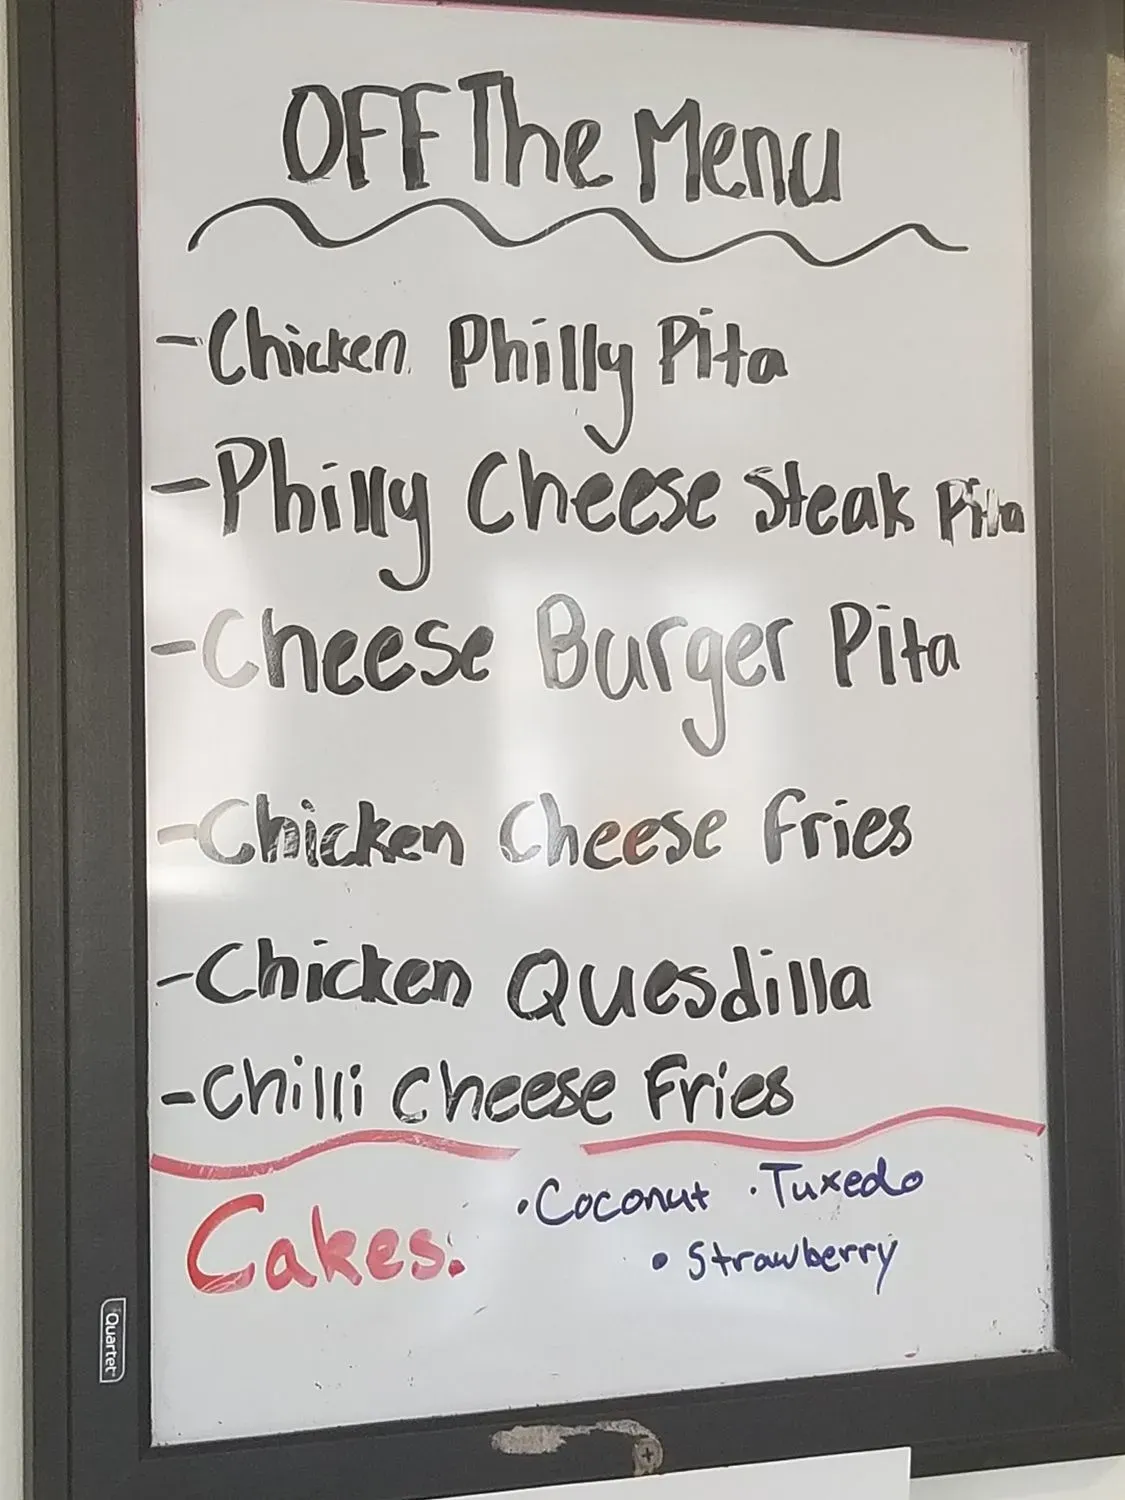 OFF The Menu
- Chicken Philly Pita
- Philly Cheese Steak Pita
- Cheese Burger Pita
- Chicken Cheese Fries
- Chicken Quesdilla
- Chilli Cheese Fries
Cakes: • Coconut • Tuxedo
• Strawberry
Quartet